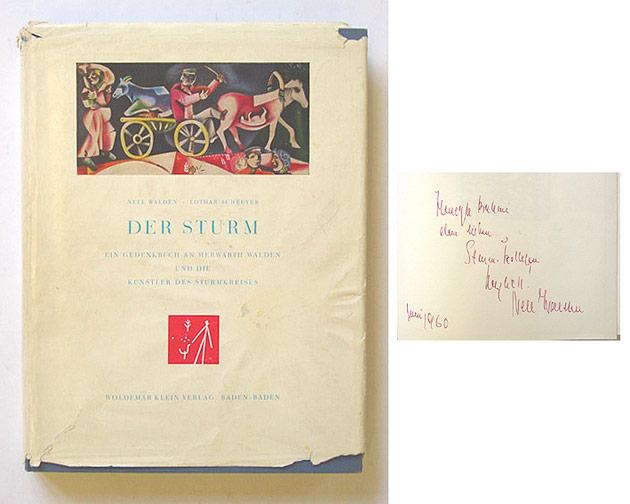 NELL WALDEN · LOTHAR SCHREYER
DER STURM
EIN GEDENKBUCH AN HERWARTH WALDEN
UND DIE
KÜNSTLER DES STURMKREISES
WOLDEMAR KLEIN VERLAG · BADEN-BADEN
dem lieben
Sturm-Kollegen
herzlich
Nell Walden
Juni 1960